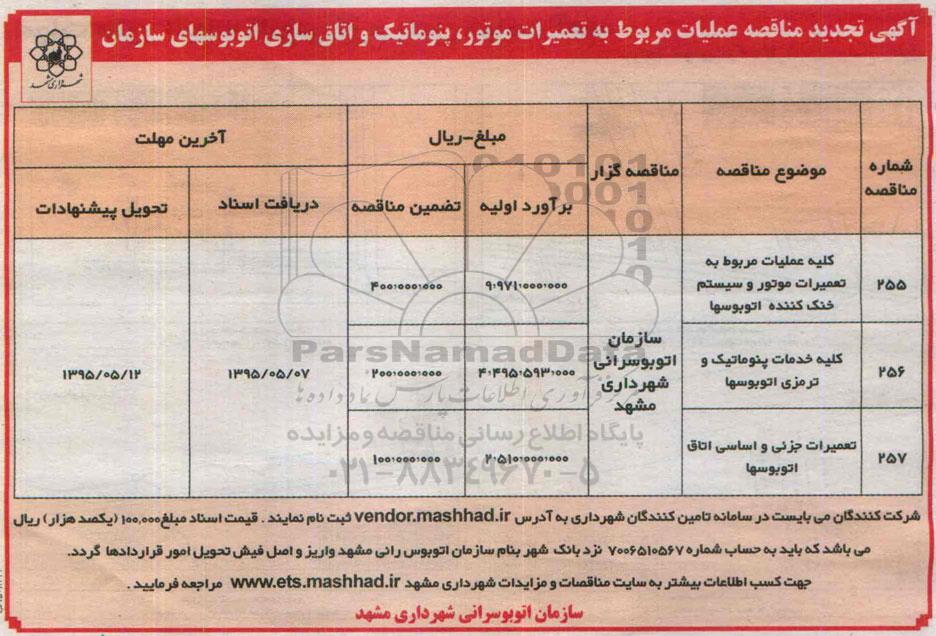 آگهی تجدید مناقصه عملیات مربوط به تعمیرات موتور، پنوماتیک و اتاق سازی اتوبوسهای سازمان
شهرداری مشهد
شماره مناقصه
موضوع مناقصه
مناقصه گزار
مبلغ-ریال
آخرین مهلت
برآورد اولیه
تضمین مناقصه
دریافت اسناد
تحویل پیشنهادات
۲۵۵
کلیه عملیات مربوط به
تعمیرات موتور و سیستم
خنک کننده اتوبوسها
۹۰۹۷۱۰۰۰۰۰۰۰۰
۴۰۰۰۰۰۰۰۰۰۰
سازمان
اتوبوسرانی
شهرداری
مشهد
۲۵۶
کلیه خدمات پنوماتیک و
ترمزی اتوبوسها
۴۰۴۹۵۰۵۹۳۰۰۰۰
۲۰۰۰۰۰۰۰۰۰۰
۱۳۹۵/۰۵/۰۷
۱۳۹۵/۰۵/۱۲
۲۵۷
تعمیرات جزئی و اساسی اتاق
اتوبوسها
۲۰۵۱۰۰۰۰۰۰۰۰۰
۱۰۰۰۰۰۰۰۰۰۰
ParsNamadData
فرآوری اطلاعات پارس نماد داده ها
پایگاه اطلاع رسانی مناقصه و مزایده
۰۲۱-۸۸۳۴۹۶۷۰-۵
شرکت کنندگان می بایست در سامانه تامین کنندگان شهرداری به آدرس vendor.mashhad.ir ثبت نام نمایند . قیمت اسناد مبلغ۱۰۰,۰۰۰ (یکصد هزار) ریال
می باشد که باید به حساب شماره ۷۰۰۶۵۱۰۵۶۷ نزد بانک شهر بنام سازمان اتوبوس رانی مشهد واریز و اصل فیش تحویل امور قراردادها گردد.
جهت کسب اطلاعات بیشتر به سایت مناقصات و مزایدات شهرداری مشهد www.ets.mashhad.ir مراجعه فرمایید .
سازمان اتوبوسرانی شهرداری مشهد